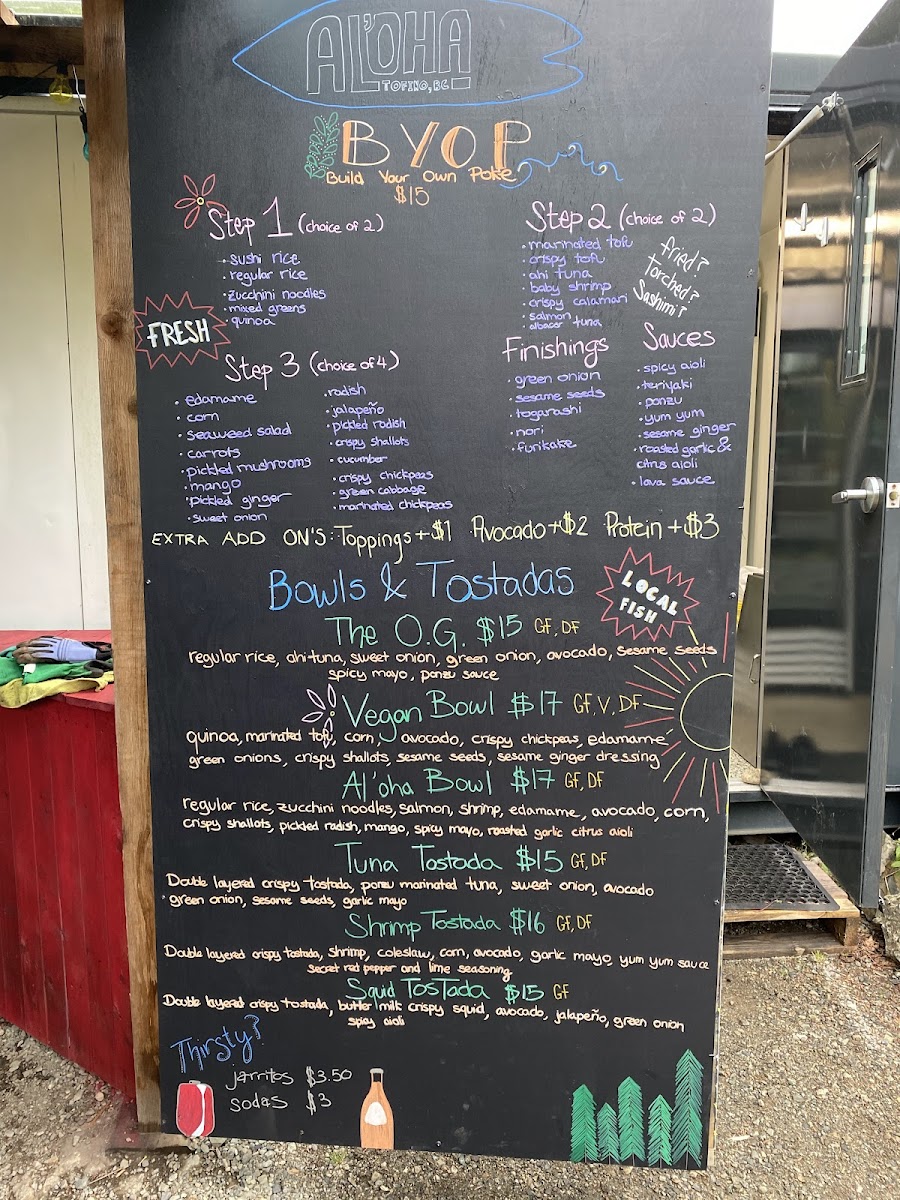 AL'OHA
TOFINO, BC
BYOP
Build Your Own Poke
$15
Step 1 (choice of 2)
sushi rice
regular rice
zucchini noodles
mixed greens
quinoa
FRESH
Step 2 (choice of 2)
marinated tofu
crispy tofu
ahi tuna
baby shrimp
crispy calamari
salmon
albacor tuna
fried?
torched?
Sashimi?
Step 3 (choice of 4)
edamame
corn
seaweed salad
carrots
pickled mushrooms
mango
pickled ginger
sweet onion
radish
jalapeño
pickled radish
crispy shallots
cucumber
crispy chickpeas
green cabbage
marinated chickpeas
Finishings
green onion
sesame seeds
togarashi
nori
furikake
Sauces
spicy aioli
teriyaki
ponzu
yum yum
sesame ginger
roasted garlic &
citrus aioli
lava sauce
EXTRA ADD ON'S: Toppings +$1 Avocado +$2 Protein +$3
Bowls & Tostadas
LOCAL
FISH
The O.G. $15 GF, DF
regular rice, ahi tuna, sweet onion, green onion, avocado, sesame seeds
spicy mayo, ponzu sauce
Vegan Bowl $17 GF, V, DF
quinoa, marinated tofu, corn, avocado, crispy chickpeas, edamame
green onions, crispy shallots, sesame seeds, sesame ginger dressing
Al'oha Bowl $17 GF, DF
regular rice, zucchini noodles, salmon, shrimp, edamame, avocado, corn,
crispy shallots, pickled radish, mango, spicy mayo, roasted garlic citrus aioli
Tuna Tostada $15 GF, DF
Double layered crispy tostada, ponzu marinated tuna, sweet onion, avocado
green onion, sesame seeds, garlic mayo
Shrimp Tostada $16 GF, DF
Double layered crispy tostada, shrimp, coleslaw, corn, avocado, garlic mayo, yum yum sauce
secret red pepper and lime seasoning
Squid Tostada $15 GF
Double layered crispy tostada, butter milk crispy squid, avocado, jalapeño, green onion
spicy aioli
Thirsty?
jarritos $3.50
sodas $3